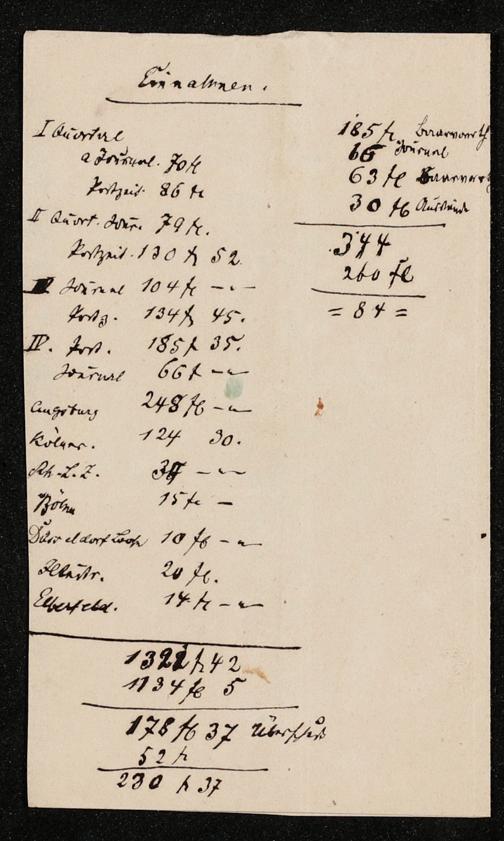 Einnahmen.
I Quartal
a Journal. 70 fl
Postzeit. 86 fl
II Quart. Jour. 79 fl.
Postzeit. 130 fl 52
III Journal 104 fl - -
Postz. 134 fl 45.
IV. Post. 185 fl 35.
Journal 66 fl - -
Augsburg 248 fl - -
Kölner. 124 30.
Rh-L.Z. - -
Böhm 15 fl -
Düsseldorf 10 fl - -
Illustr. 20 fl.
Elberfeld. 14 fl - -
1322 fl 42
1134 fl 5
178 fl 37 Überschuß
52 fl
230 fl 37
185 fl
66 Journal
63 fl
30 fl Ausstände
344
260 fl
= 84 =